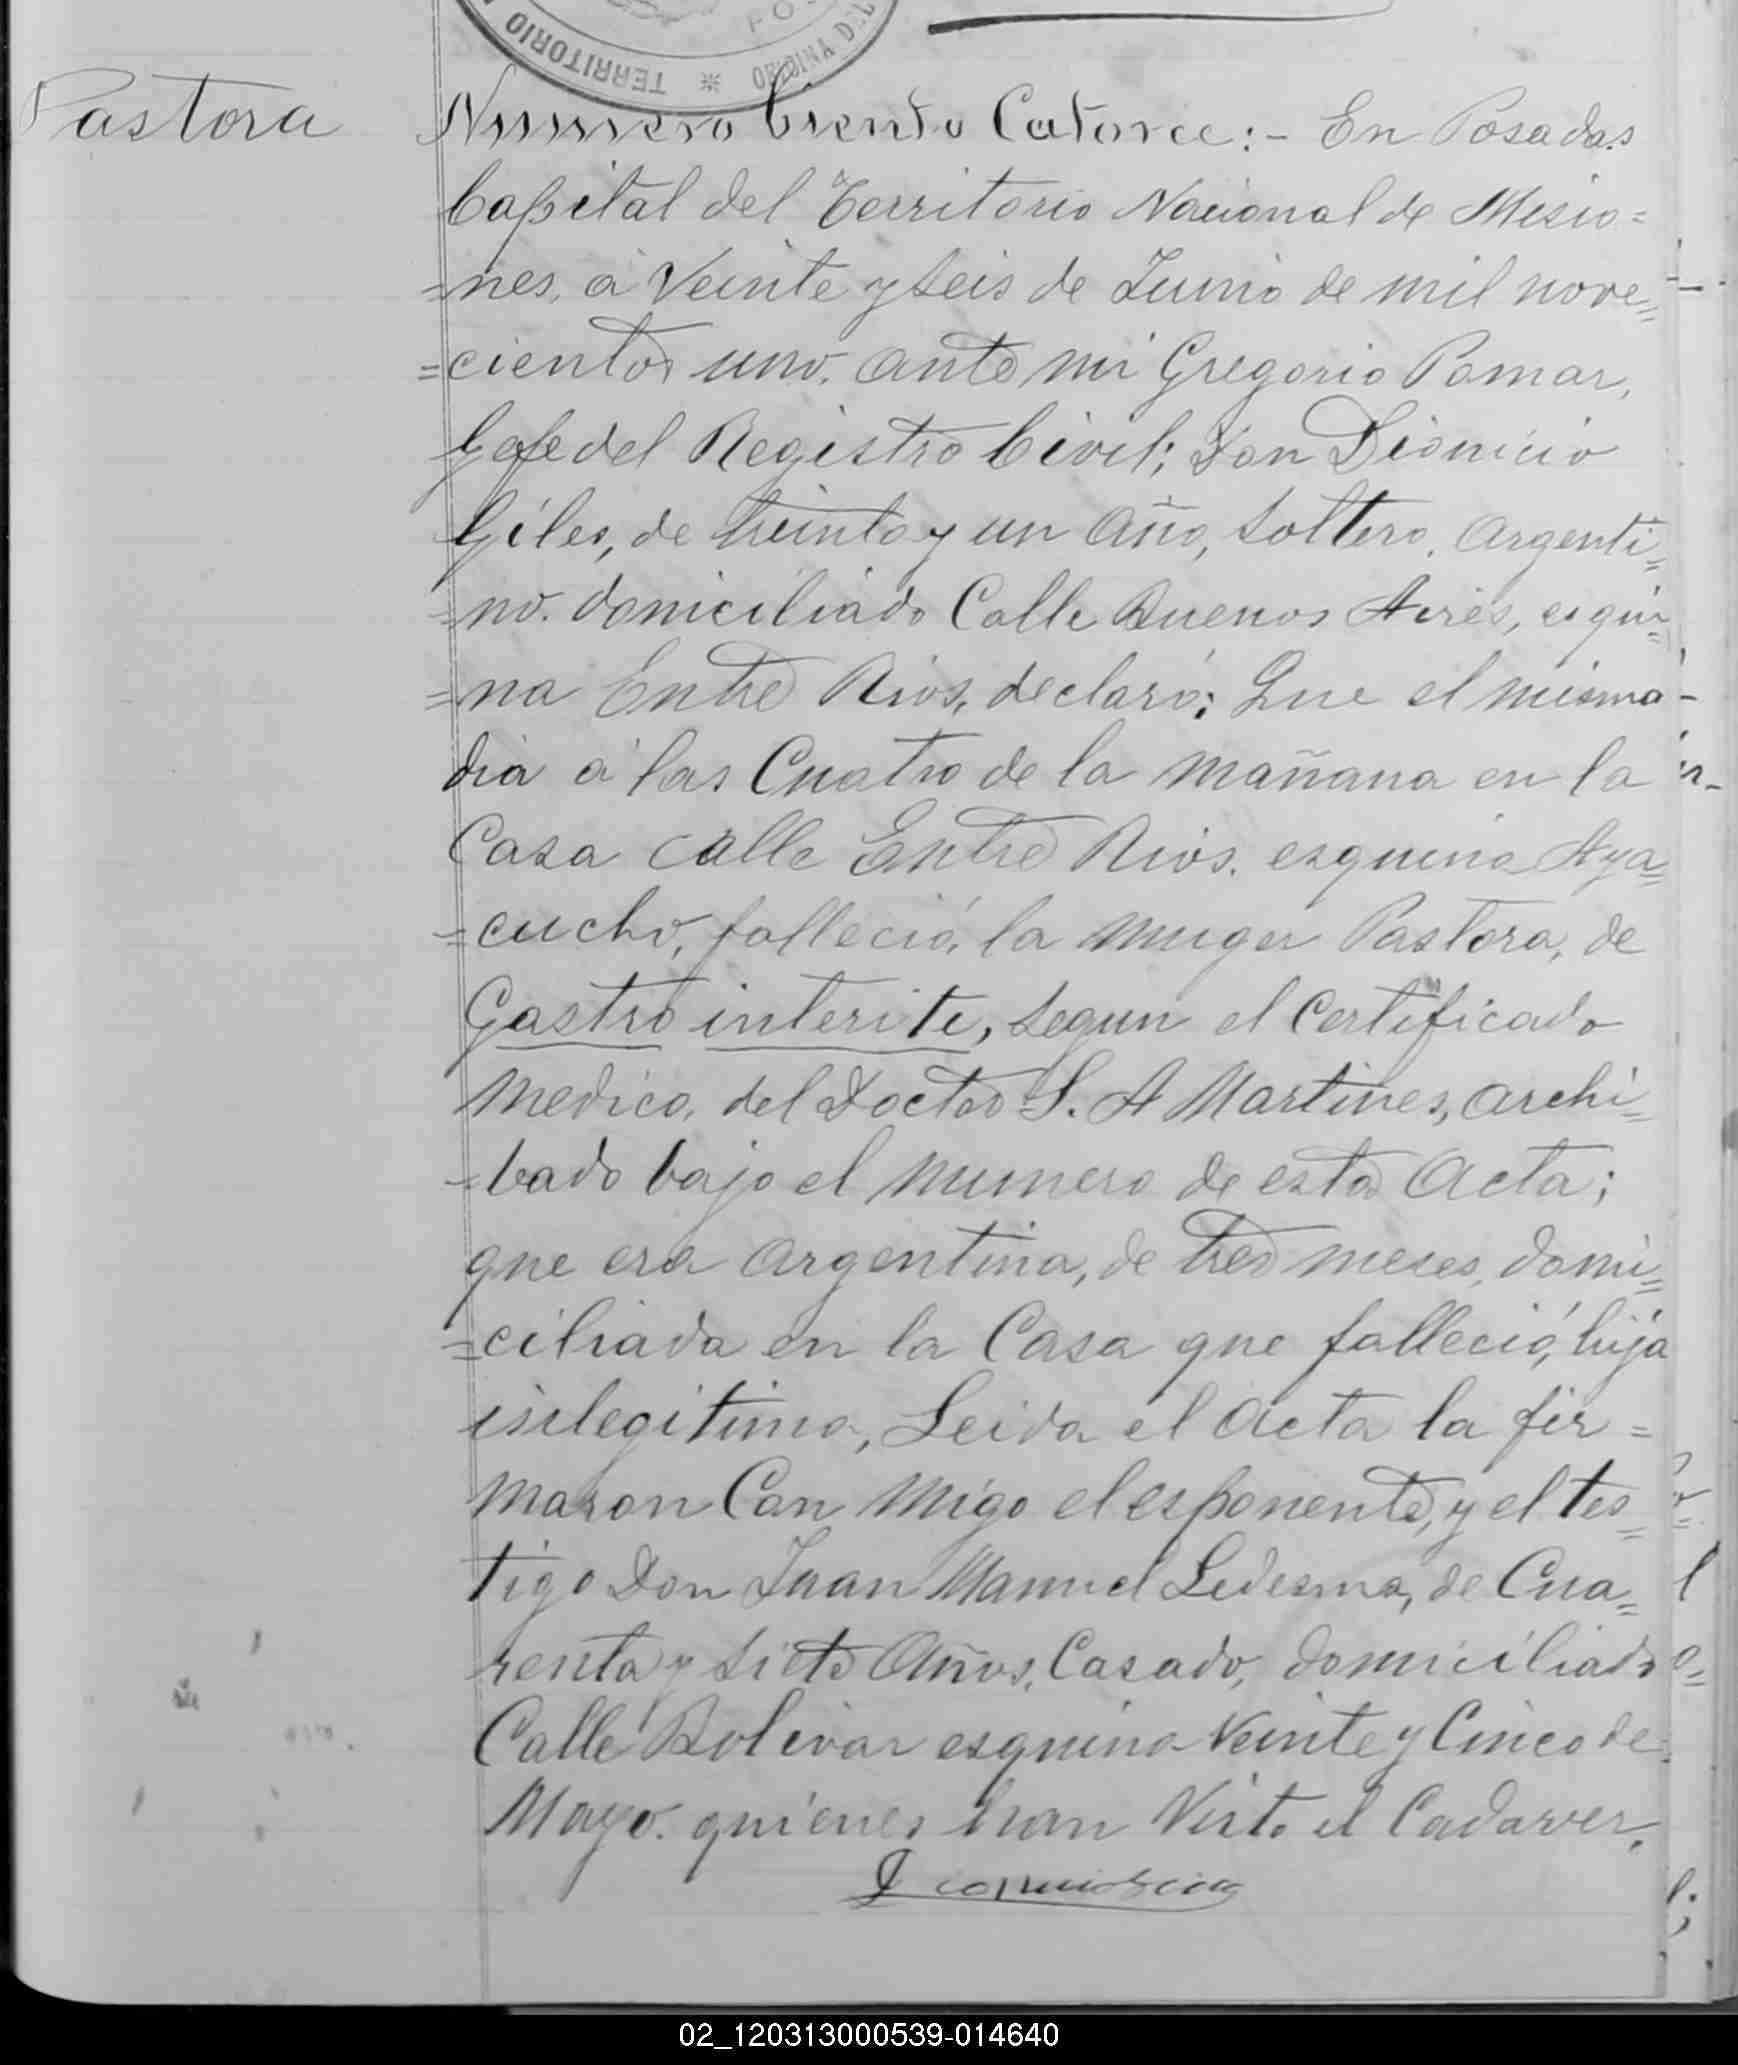 TERRITORIO
OFICINA DEL
Pastora
Numero Ciento Catorce:- En Posadas
Capital del Territorio Nacional de Misio=
=nes, á Veinte y seis de Junio de mil nove=
=cientos uno. ante mi Gregorio Pomar,
Gefe del Registro Civil; Don Dionicio
Giles, de treinta y un año, soltero, argenti=
=no. domiciliado Calle Buenos Aires, esqui=
=na Entre Rios, declaró: Que el mismo
dia á las Cuatro de la mañana en la
Casa calle Entre Rios. esquina Aya=
=cucho, falleció, la muger Pastora, de
Gastro interite, segun el Certificado
Medico, del Doctor S. A Martines, archi=
=bado bajo el numero de esta Acta;
que era argentina, de tres meses, domi=
=ciliada en la Casa que falleció, hija
inlegitima, Leida el Acta la fir=
maron Con migo el esponente, y el tes=
tigo Don Juan Manuel Ledesma, de Cua=
renta y siete Años, Casado, domiciliado
Calle Bolivar esquina Veinte y Cinco de
Mayo. quienes han Visto el Cadaver,
02_120313000539-014640